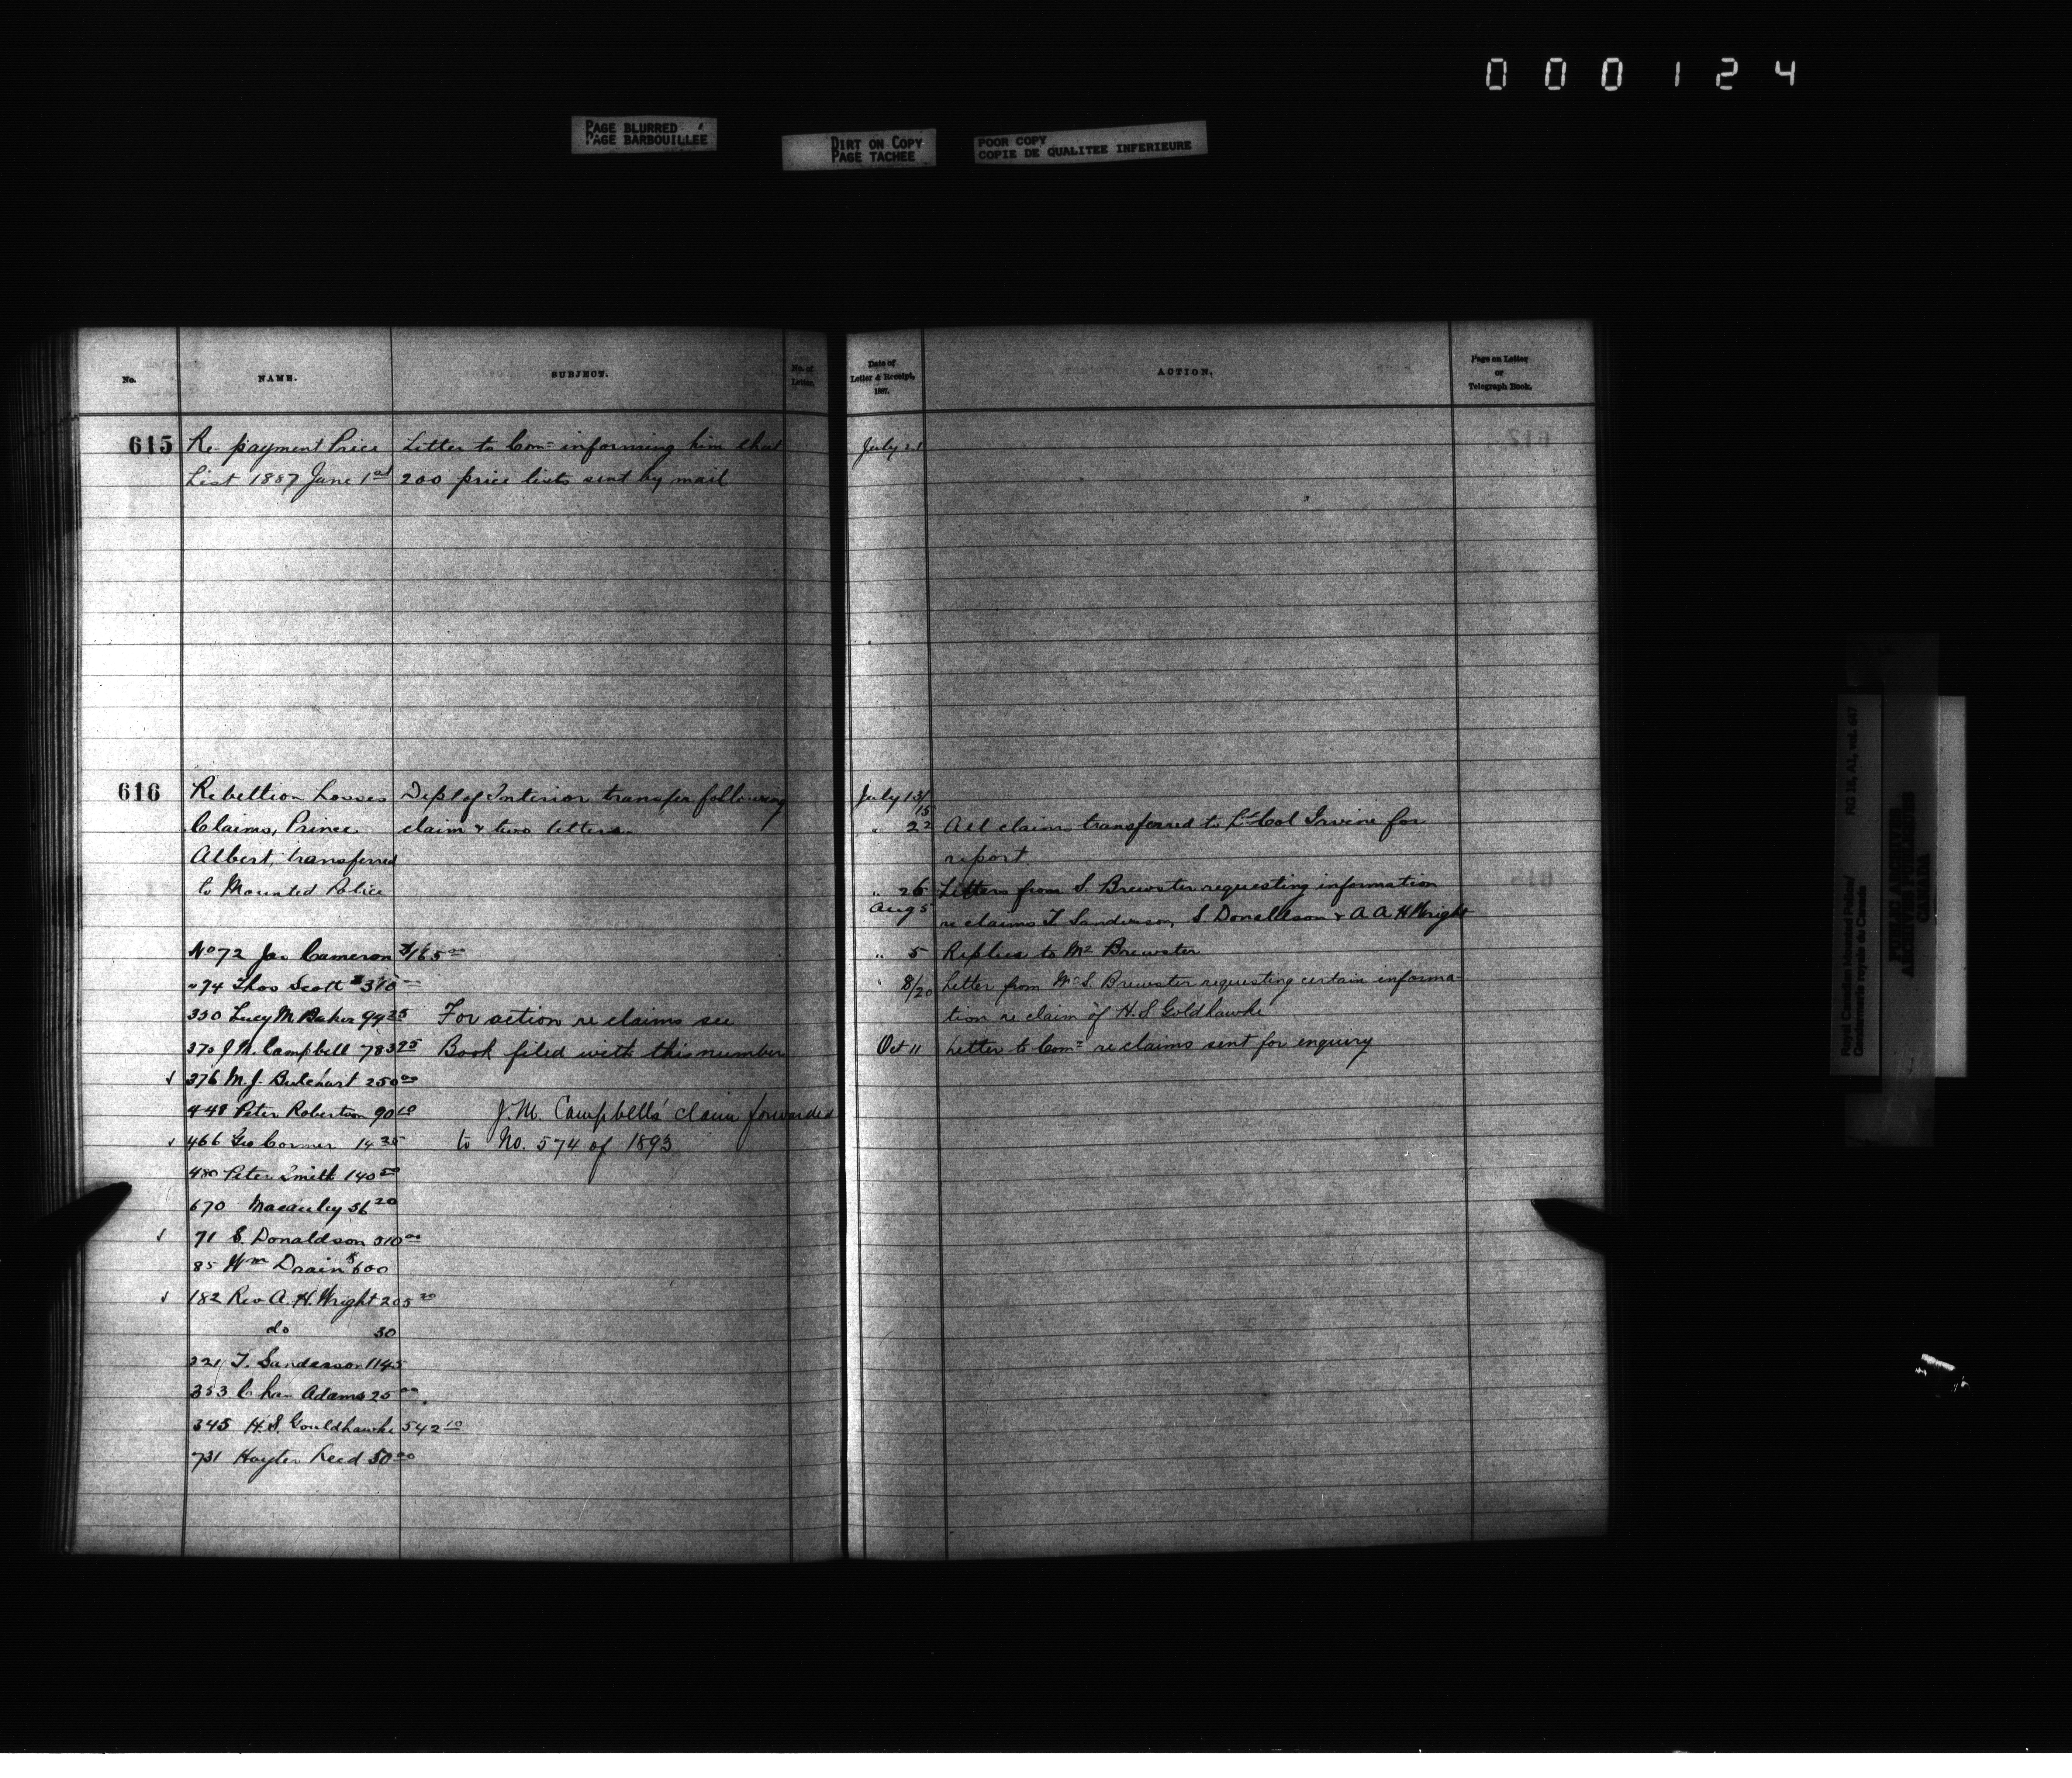 0 0 0 1 2 4
PAGE BLURRED
PAGE BARBOUILLEE
DIRT ON COPY
PAGE TACHEE
POOR COPY
COPIE DE QUALITEE INFERIEURE
No. NAME. SUBJECT. No. of Letter.
615 Re payment Price Letter to Com= informing him that
List 1887 June 1st 200 price lists sent by mail
616 Rebellion Losses Dept of Interior transfer following
Claims, Prince claim & two letters.
Albert, transferred
to Mounted Police
No 72 Jas Cameron $165 00
" 74 Thos Scott
350 Lucy M Baker 99 25 For action re claims see
370 J M. Campbell 783 25 Book filed with this number
376 M. J. 250 00
448 Peter Robertson 90 10 J. M. Campbells' claim forwarded
466 Geo 14 35 to No. 574 of 1893
480 Peter Smith 140 50
670 Macauley 56 20
71 S. Donaldson 310 00
85 Wm Drain $600
182 Rev A. H. Wright 205 20
do 30
221 T. Sanderson 1145
353 Chas Adams 25 00
345 H. S. Gouldhawke 542 10
731 Hayter Reed 50 00
Date of Letter & Receipt, 1887. ACTION. Page on Letter or Telegraph Book.
July 21
July 13/15
" 22 All claims transferred to Lt Col Irvine for
report.
" 26 Letters from S. Brewster requesting information
Aug 5 re claims T Sanderson, S. Donaldson & A. A. H Wright
" 5 Replies to Mr Brewster
" 8/20 Letter from Mr S. Brewster requesting certain informa-
tion re claim of H. S Goldhawke
Oct 11 Letter to Com= re claims sent for enquiry
Royal Canadian Mounted Police/
Gendarmerie royale du Canada
RG 18, A1, vol. 647
PUBLIC ARCHIVES
ARCHIVES PUBLIQUES
CANADA